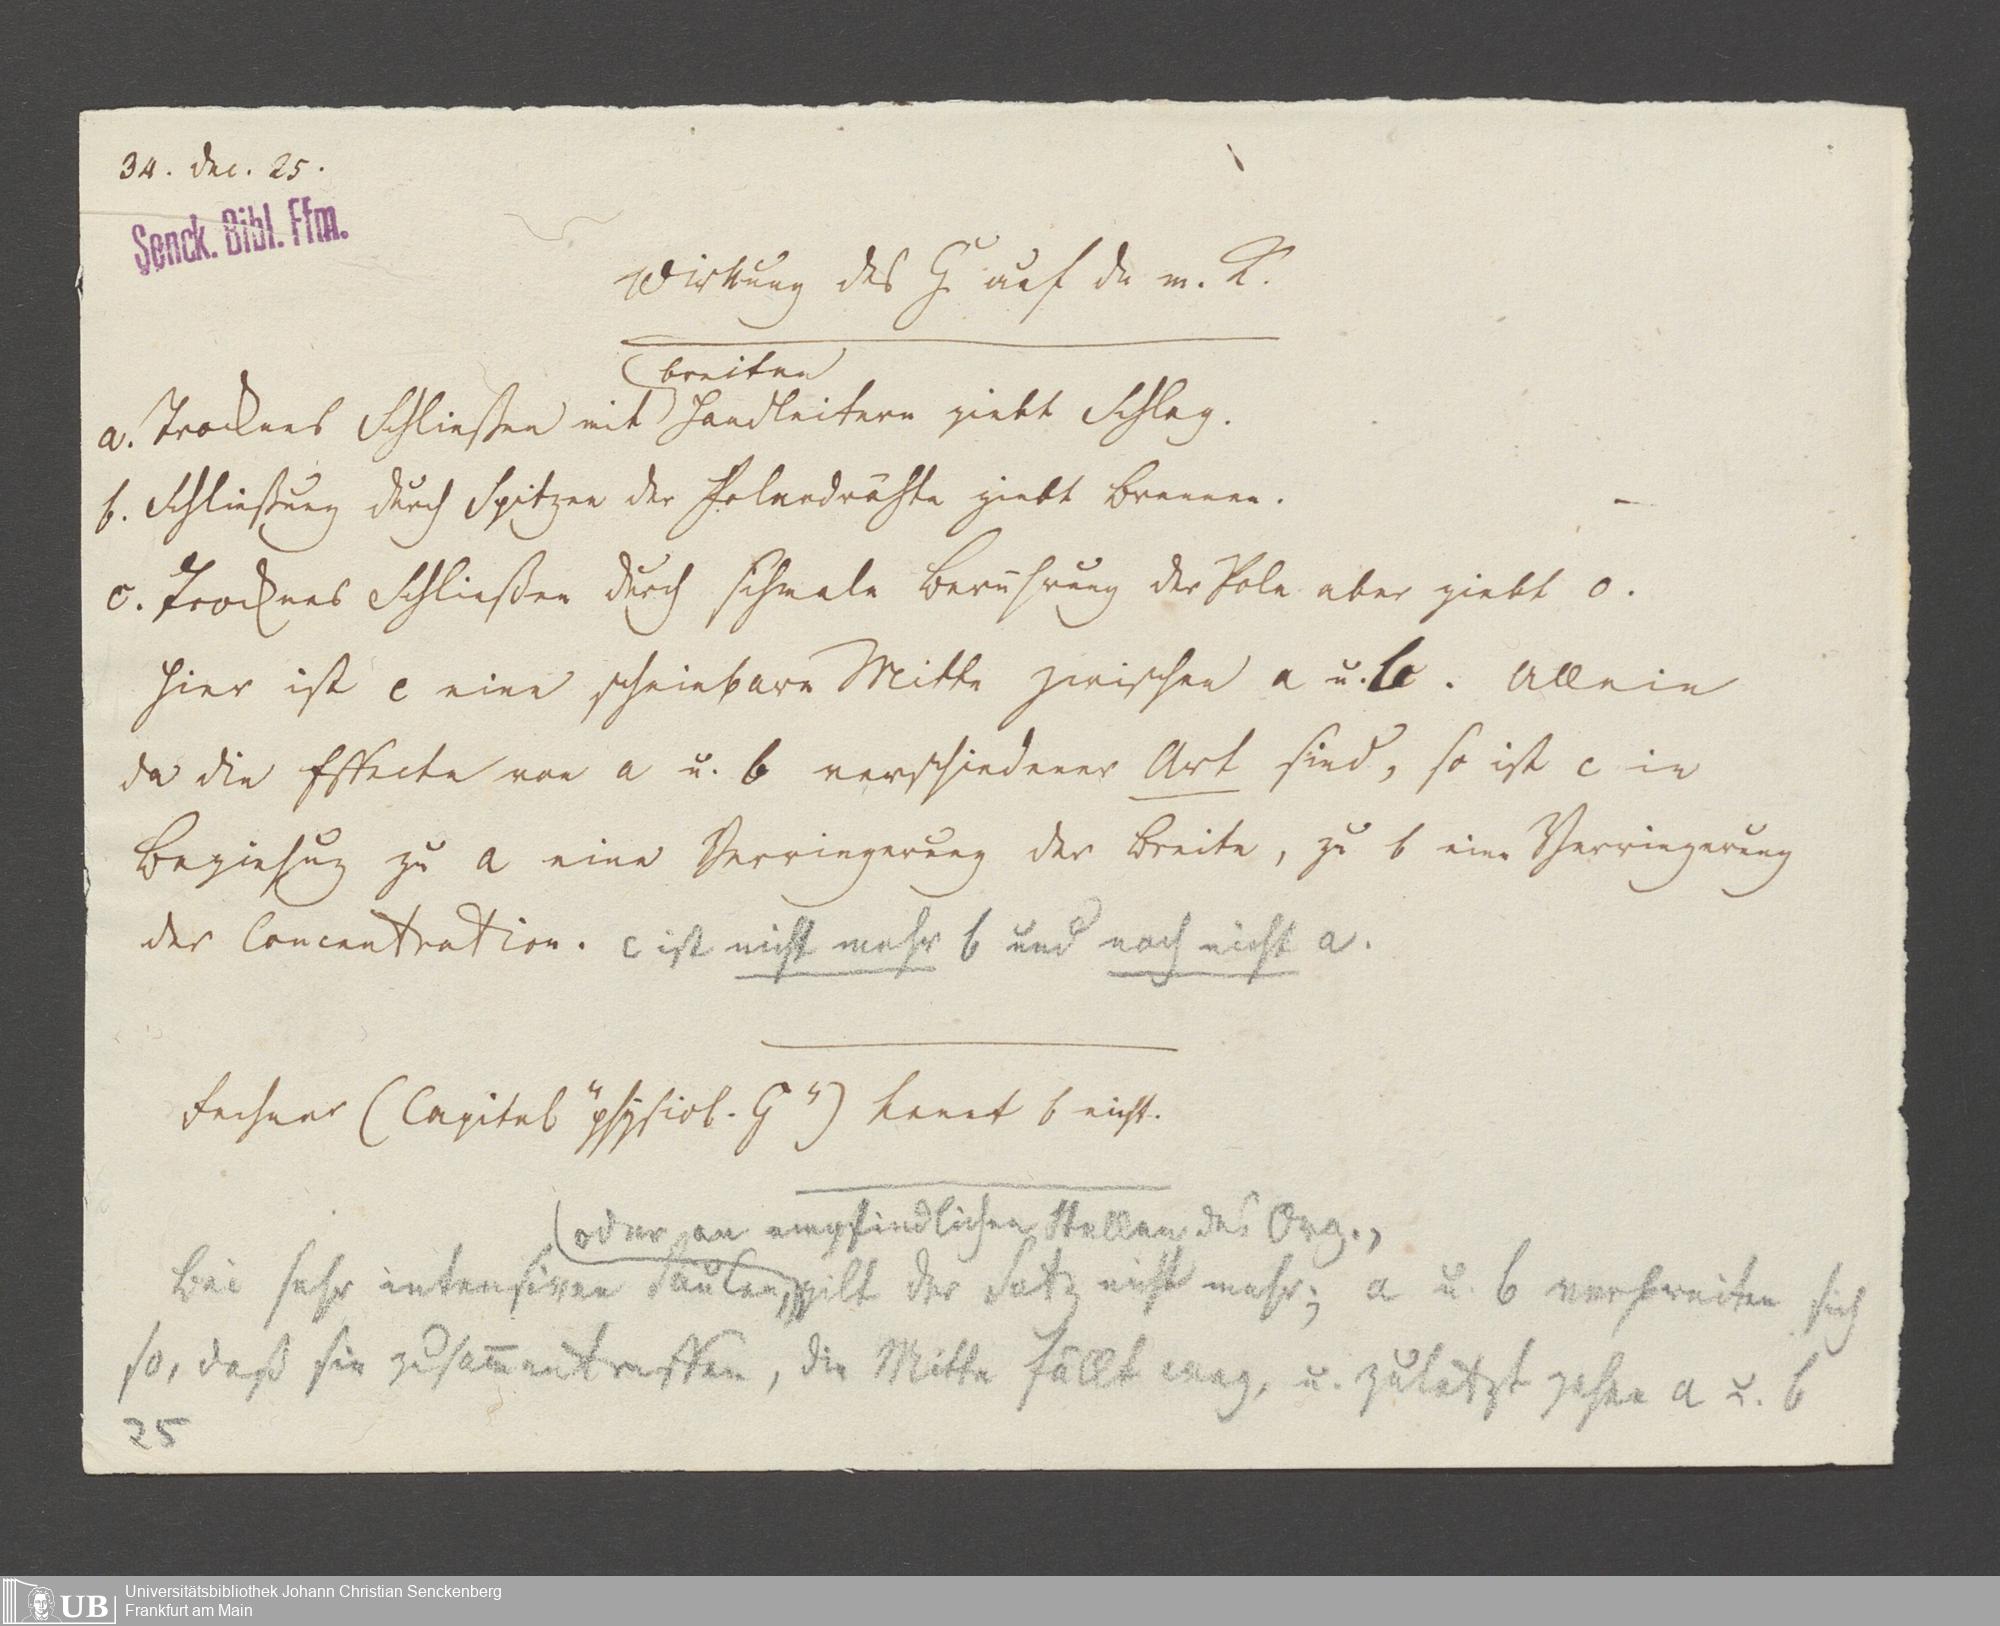 34. Dec. 25.
Senck. Bibl. Ffm.
Wirkung des G. auf den m. K.
breiten
a. Trocknes Schließen mit Handleitern giebt Schlag.
b. Schließung durch Spitzen der Polardrähte giebt Brennen.
c. Trocknes Schließen durch schmale Berührung der Pole aber giebt 0.
Hier ist c eine scheinbare Mitte zwischen a u. b. Allein
da die Effecte von a u. b verschiedener Art sind, so ist c in
Beziehung zu a eine Verringerung der Breite, zu b eine Verringerung
der Concentration. c ist nicht mehr b und noch nicht a.
Fechner (Capitel "physiol. G") kennt b nicht.
oder an empfindlichen Stellen des Org.,
Bei sehr intensiven Säulen, gilt der Satz nicht mehr; a u. b verbreiten sich
so, daß sie zusam̅entreffen, die Mitte fällt weg, u. zuletzt gehen a u. b
25
UB
Universitätsbibliothek Johann Christian Senckenberg
Frankfurt am Main